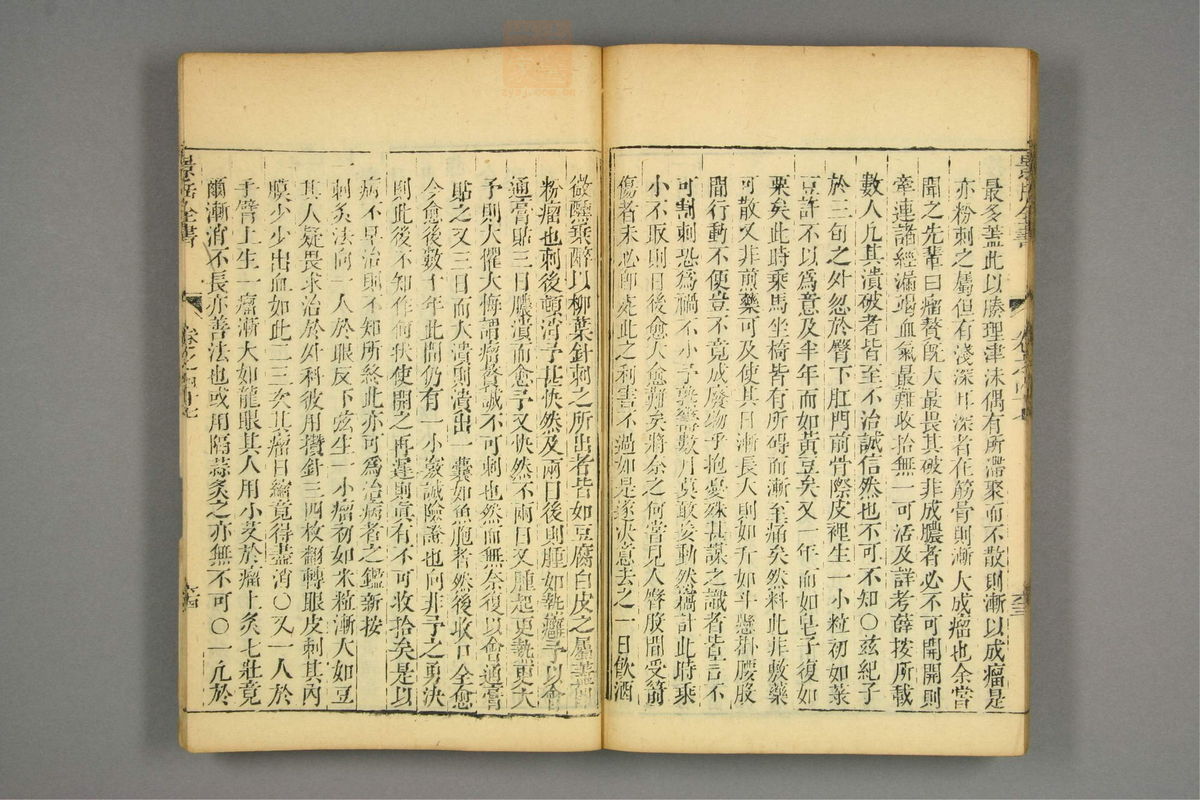 景岳全書
卷之四十七
最多蓋此以腠理津沫偶有所滯聚而不散則漸以成瘤是
亦粉刺之屬但有淺深耳深者在筋骨則漸大成瘤也余嘗
聞之先輩曰瘤贅既大最畏其破非成膿者必不可開開則
牽連諸經漏竭血氣最難收拾無一可活及詳考薛按所載
數人凡其潰破者皆至不治誠信然也不可不知○茲紀子
於三旬之外忽於臀下肛門前骨際皮裡生一小粒初如菉
豆許不以爲意及半年而如黃豆矣又一年而如皂子復如
栗矣此時乘馬坐椅皆有所碍而漸至痛矣然料此非敷藥
可散又非煎藥可及使其日漸長大則如升如斗懸掛腰股
間行動不便豈不竟成廢物乎抱憂殊甚謀之識者皆言不
可割刺恐爲禍不小予熟籌數月莫敢妄動然窃計此時乘
小不取則日後愈大愈難矣將奈之何嘗見人臍股間受箭
傷者未必即死此之利害不過如是遂決意去之一日飲酒
微醺乘醉以柳葉針刺之所出者皆如豆腐白皮之屬蓋即
粉瘤也刺後頓消予甚快然及兩日後則腫如熱癰予以會
通膏貼三日膿潰而愈予又快然不兩日又腫起更熱更大
予則大懼大悔謂瘤贅誠不可刺也然而無奈復以會通膏
貼之又三日而大潰則潰出一囊如魚胞者然後收口全愈
今愈後數十年此間仍有一小窽誠險證也向非予之勇決
則此後不知作何狀使開之再遲則眞有不可收拾矣是以
病不早治則不知所終此亦可爲治病者之鑑新按
一刺灸法向一人於眼反下弦生一小瘤初如米粒漸大如豆
其人疑畏求治於外科彼用攢針三四枚翻轉眼皮刺其內
膜少少出血如此二三次其瘤日縮竟得盡消○又一人於
手臂上生一瘤漸大如龍眼其人用小艾於瘤上灸七壯竟
爾漸消不長亦善法也或用隔蒜灸之亦無不可○一凡於
景岳全書
卷之四十七